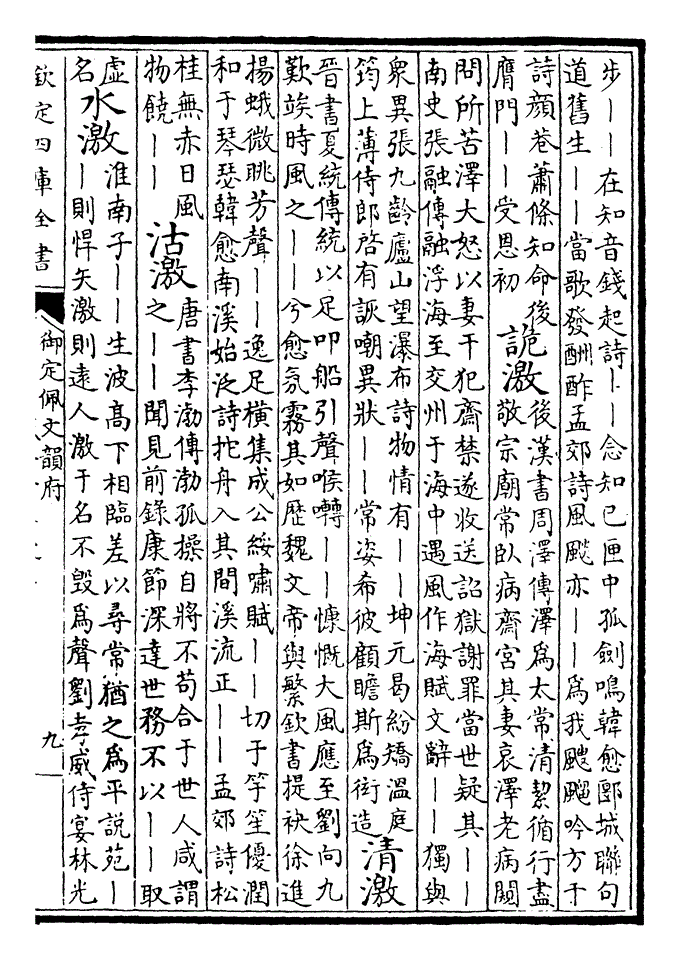 步｜｜在知音錢起詩｜｜念知已匣中孤劍鳴韓愈郾城聯句
道舊生｜｜當歌發酬酢孟郊詩風颷亦｜｜爲我颼飀吟方于
詩顔巷蕭條知命後
膺門｜｜受恩初
詭激
後漢書周澤傳澤爲太常清絜循行盡
敬宗廟常臥病齋宮其妻哀澤老病闚
問所苦澤大怒以妻干犯齋禁遂收送詔獄謝罪當世疑其｜｜
南史張融傳融浮海至交州于海中遇風作海賦文辭｜｜獨與
衆異張九齡廬山望瀑布詩物情有｜｜坤元曷紛矯溫庭
筠上薄侍郎啓有詼嘲異狀｜｜常姿希彼顧瞻斯爲衒造
清激
晉書夏統傳統以足叩船引聲喉囀｜｜慷慨大風應至劉向九
歎竢時風之｜｜兮愈氛霧其如歴魏文帝與繁欽書提袂徐進
揚蛾微眺芳聲｜｜逸足橫集成公綏嘯賦｜｜切于竽笙優潤
和于琴瑟韓愈南溪始泛詩拕舟入其間溪流正｜｜孟郊詩松
桂無赤日風
物饒｜｜
沽激
唐書李渤傳渤孤操自將不苟合于世人咸謂
之｜｜聞見前錄康節深達世務不以｜｜取
虛
名
水激
淮南子｜｜生波高下相臨差以尋常猶之爲平說苑｜
｜則悍矢激則遠人激于名不毁爲聲劉孝威侍宴林光
欽定四庫全書
御定佩文韻府
九